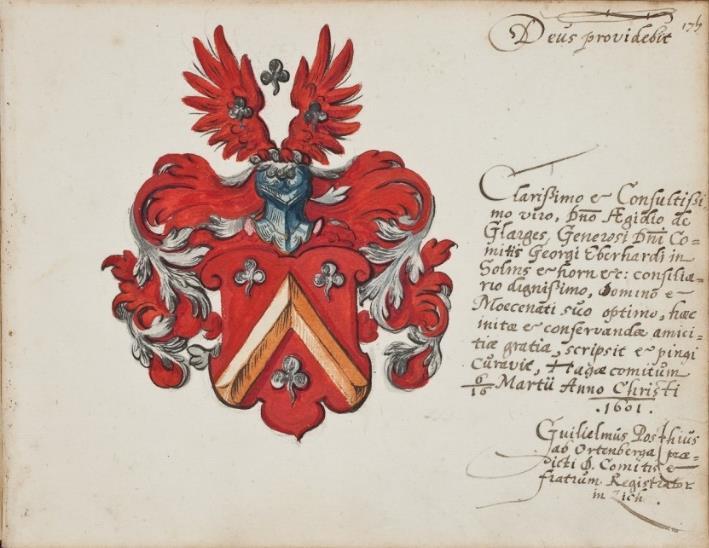 175
Deus providebit
Clarißimo & Consultißi
mo viro, Dno Ægidio de
Glarges, Generosi Dni Co=
mitis Georgi Eberhardi in
Solms & horn &c: consilia=
rio dignißimo, Domino &
Moecenati suo optimo, hæc
initæ & conservandæ amici
tiæ gratia, scripsit & pingi
curavit, Hagæ comitum
6/16 Martii Anno Christi
.1601.
Guilielmus Posthius
ab Ortenberga præ=
dicti D. Comitis &
fratrum Registrator
in Lich